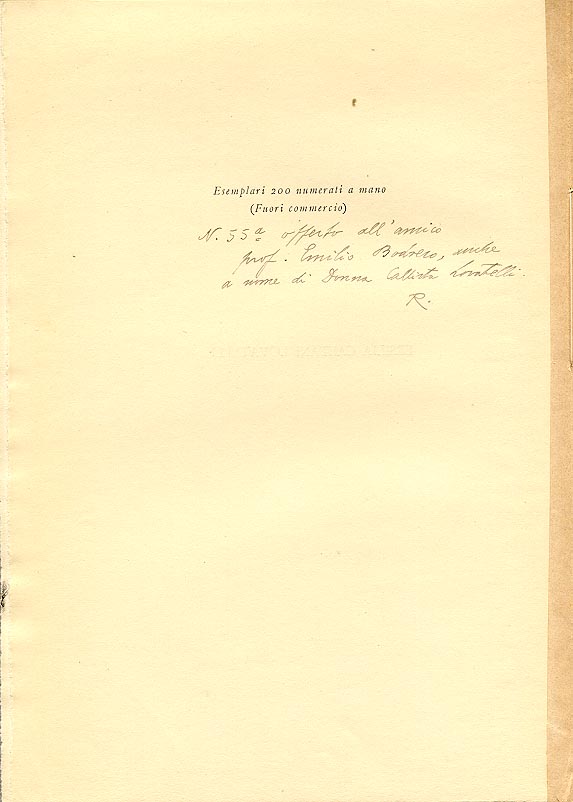 Esemplari 200 numerati a mano
(Fuori commercio)
N. 55ª offerto all'amico
prof. Emilio Bodrero, anche
a nome di Donna Callista Lovatelli.
R.